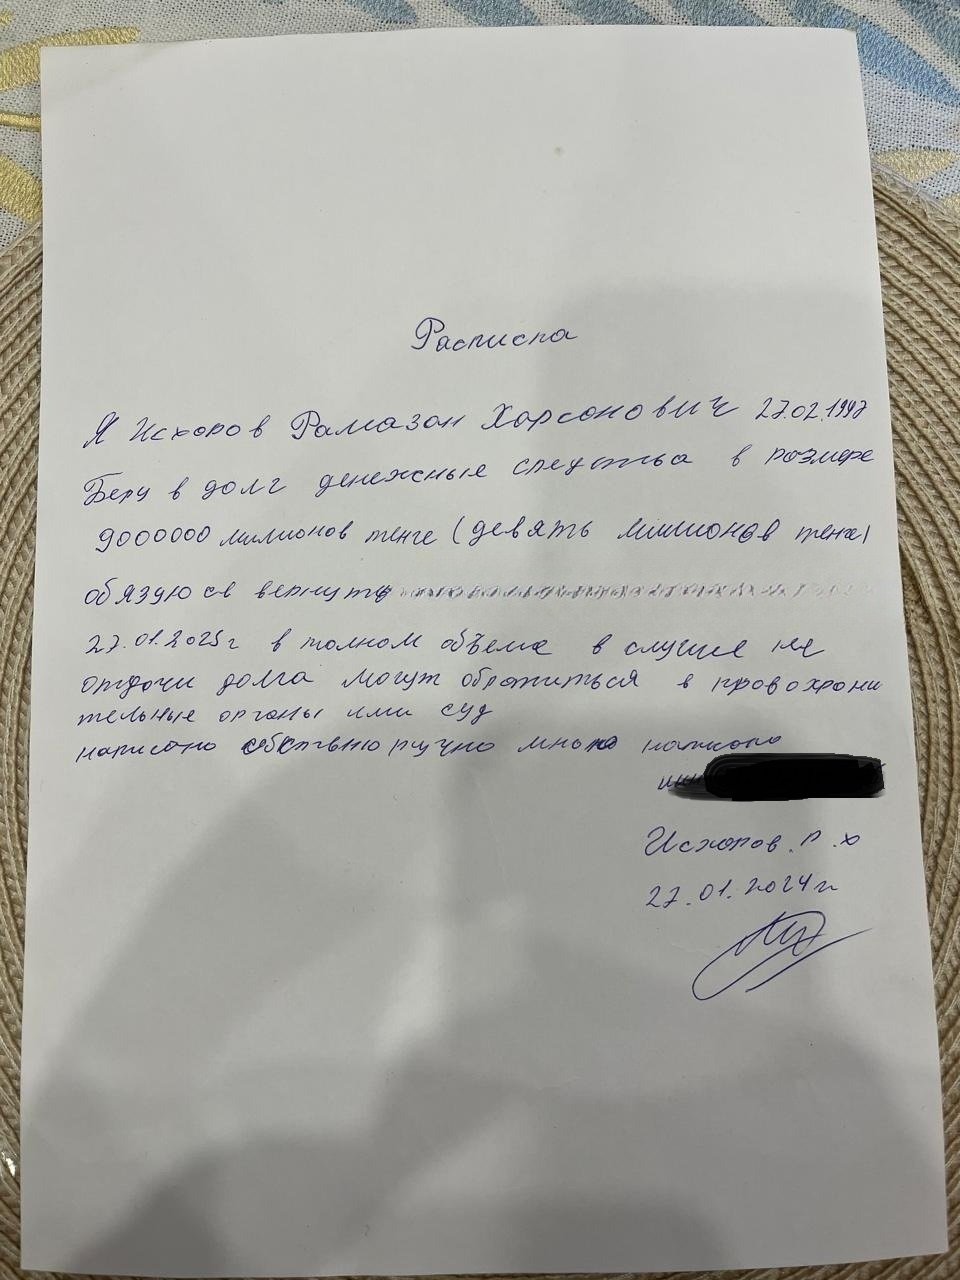 Расписка
Я Исхоров Рамазан Харсонович 27.02.1997
Беру в долг денежные средства в розмере
9000000 милионов тенге (девять миллионов тенге)
обязуюсь вернуть
27.01.2025г в полном объёме в случие не
отдачи долга могут обротиться в провохрони
тельные органы или суд
написано собственно ручно мною
Исхоров.Р.Х
27.01.2024г